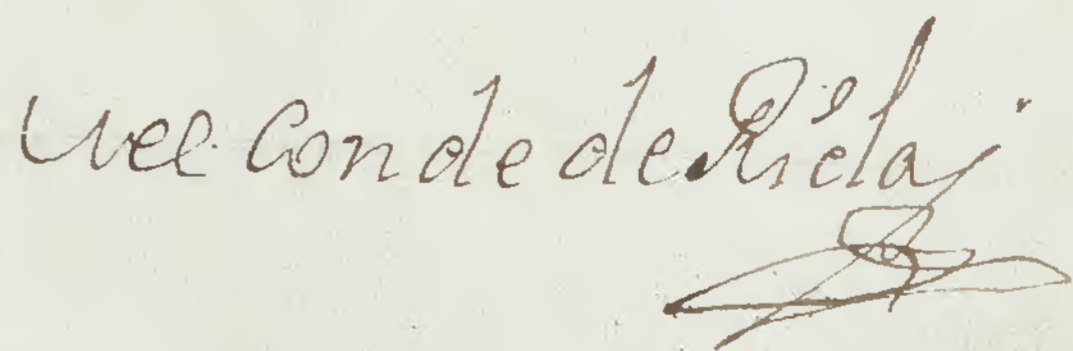 el Conde de Riela